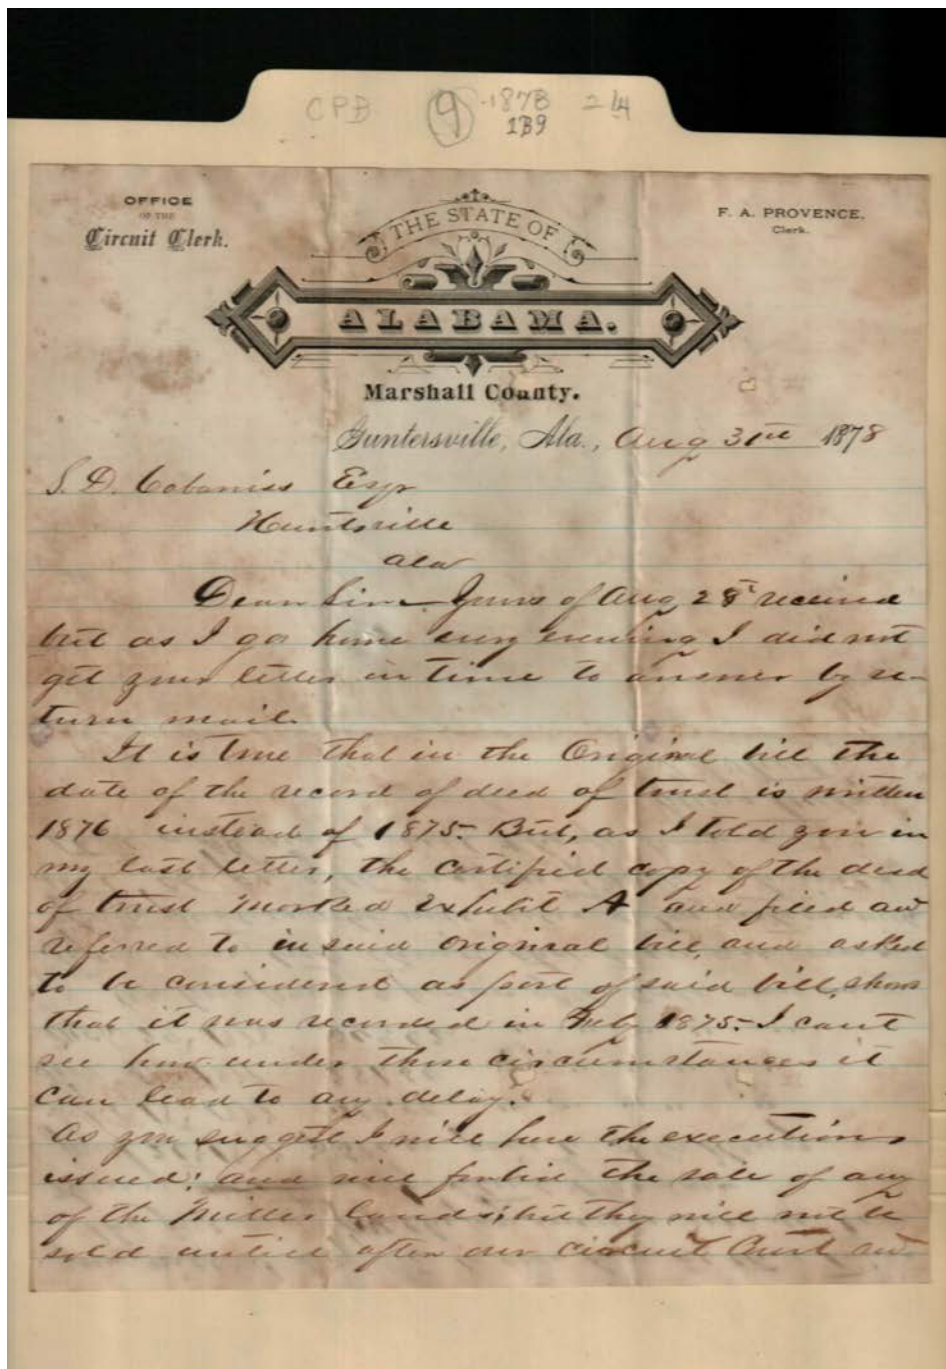 CPB 9 1878 2 4
1B9
OFFICE
OF THE
Circuit Clerk.
THE STATE OF
ALABAMA.
F. A. PROVENCE,
Clerk.
Marshall County.
Guntersville, Ala., Aug 31st 1878
S. D. Cabaniss Esqr
Huntsville
Ala
Dear Sir Yours of Aug 28" received
but as I go home every evening I did not
get your letter in time to answer by re-
turn mail.
It is true that in the Original bill the
date of the record of deed of trust is written
1876 instead of 1875. But, as I told you in
my last letter, the certified copy of the deed
of trust marked Exhibit A and filed and
referred to in said original bill, and asked
to be considered as part of said bill, shows
that it was recorded in 1875. I cant
see how under these circumstances it
can lead to any delay.
As you suggest I will have the executions
issued; and will forbid the sale of any
of the Miller lands; but they will not be
sold until after our circuit Court and